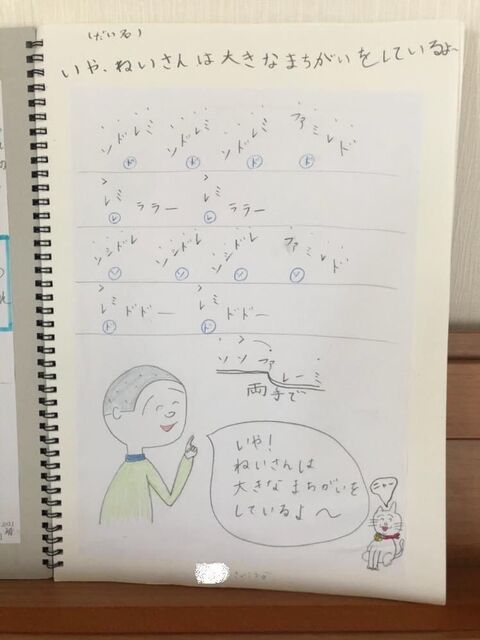 (だい名)
いや、ねいさんは大きなまちがいをしているよ〜
ソドレミ ソドレミ ソドレミ ファミレド
ド ド ド ド
レミ ララー レミ ララー
レ レ
ソシドレ ソシドレ ソシドレ ファミレド
ソ ソ ソ ソ
レミ ドドー レミ ドドー
ド ド
ソソファ レーミ
両手で
いや!
ねいさんは
大きなまちがいを
しているよ〜
ニャー
2021